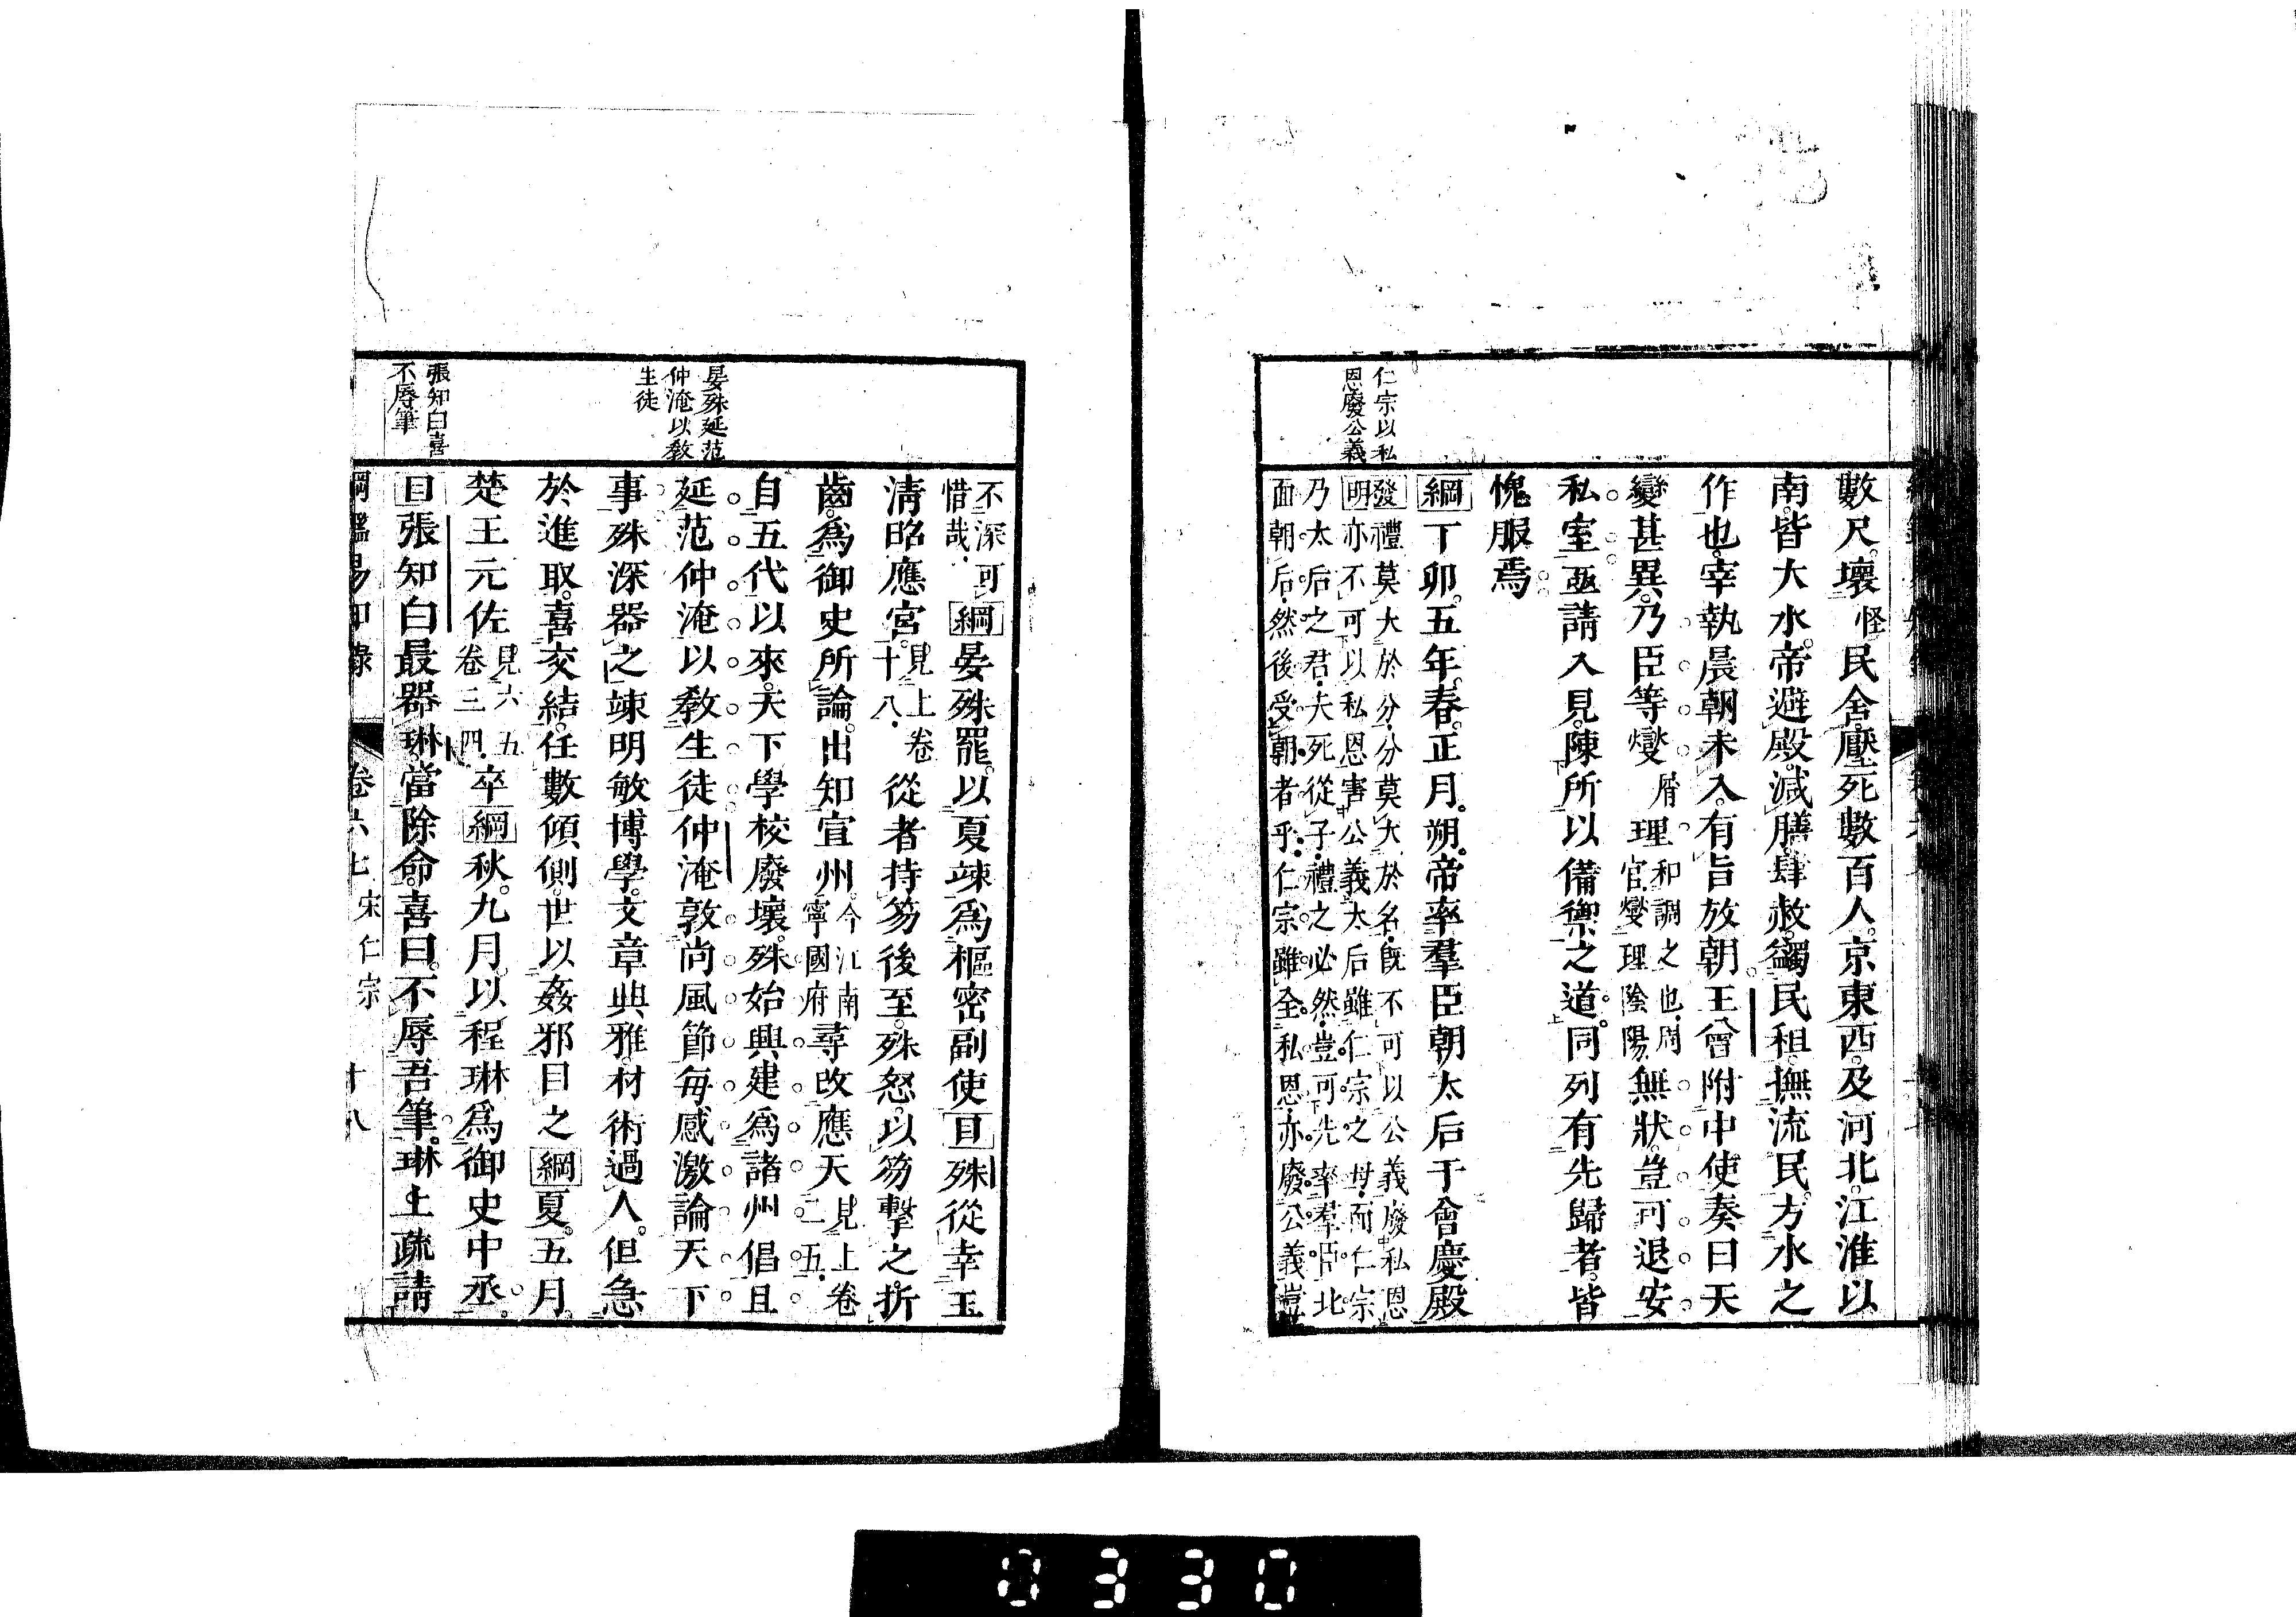 仁宗以私
恩廢公義
數尺。壞怪民舍。壓死數百人。京東西。及河北。江淮以
南。皆大水。帝避殿。減膳。肆赦。蠲民租。撫流民。方水之
作也。宰執晨朝未入。有旨放朝。王曾附中使奏曰。天
變甚異。乃臣等燮屑理和調之也。周官。燮理陰陽。無狀。豈可退安
私室。亟請入見。陳所以備禦之道。同列有先歸者。皆
愧服焉。
綱丁卯。五年。春。正月。朔。帝率羣臣朝太后于會慶殿
發明禮莫大於分。分莫大於名。既不可以公義廢私恩
亦不可以私恩害公義。太后雖仁宗之母。而仁宗
乃太后之君。夫死從子。禮之必然。豈可先率羣臣。北
面朝后。然後受朝者乎。仁宗雖全私恩。亦廢公義。豈
晏殊延范
仲淹以教
生徒
張知白喜
不辱筆
不深可
惜哉。
綱晏殊罷。以夏竦爲樞密副使目殊從幸玉
清昭應宮。見上卷十八。從者持笏後至。殊怒。以笏擊之。折
齒。爲御史所論。出知宣州。今江南寧國府尋改應天見上卷二五。
自五代以來。天下學校廢壞。殊始興建。爲諸州倡。且
延范仲淹以教生徒。仲淹敦尚風節。每感激論天下
事。殊深器之。竦明敏博學。文章典雅。材術過人。但急
於進取。喜交結。任數傾側。世以姦邪目之綱夏。五月。
楚王元佐見六五卷三四。卒綱秋。九月。以程琳爲御史中丞。
目張知白最器琳。當除命。喜曰。不辱吾筆。琳上疏請
綱鑑易知錄 卷六七 宋仁宗 十八